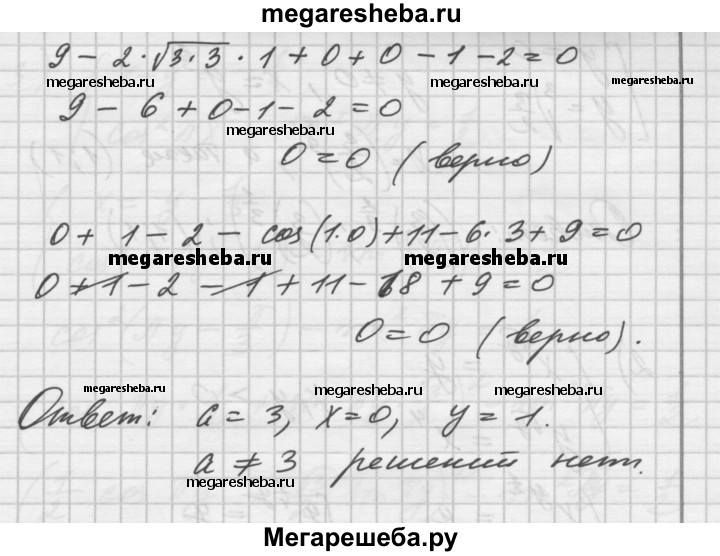 megaresheba.ru
9 - 2 · √3·3 · 1 + 0 + 0 - 1 - 2 = 0
megaresheba.ru megaresheba.ru megaresheba.ru
9 - 6 + 0 - 1 - 2 = 0
megaresheba.ru
0 = 0 (верно)
0 + 1 - 2 - cos(1·0) + 11 - 6·3 + 9 = 0
megaresheba.ru megaresheba.ru
0 + 1 - 2 - 1 + 11 - 18 + 9 = 0
0 = 0 (верно).
megaresheba.ru megaresheba.ru megaresheba.ru
Ответ: a = 3, x = 0, y = 1.
a ≠ 3 решений нет.
megaresheba.ru megaresheba.ru
Мегарешеба.ру